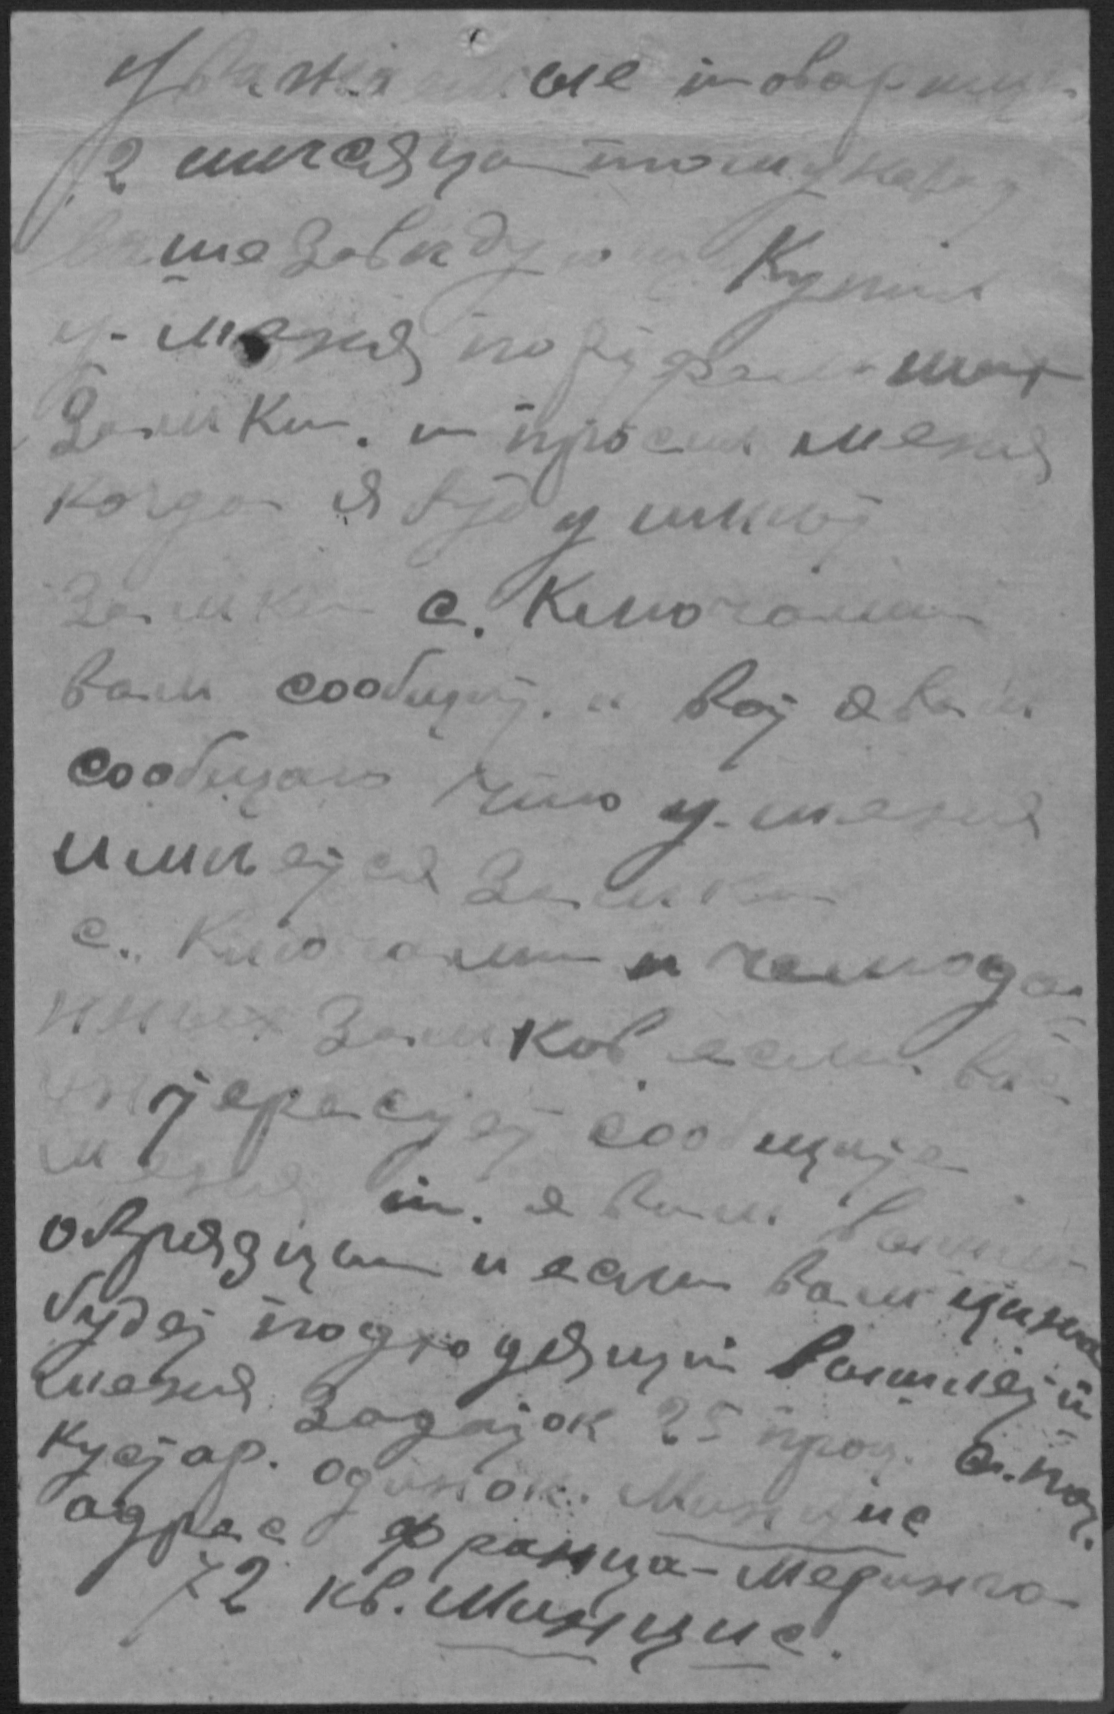 Уважаемые товарищи
2 мисяца тому назад
ваше завидующ Купил
у-меня
Замки. и просил меня
когда я буду имет
Замки с. Ключами
вам сообщит. и вот я вам
сообщаю что у-меня
имиется Замки
с. Ключами и чемода
нных Замков если вас
интересует сообщите
меня и. я вам вышлю
обрязцы и если вам цина
будет подходящии вышлети
меня Задаток 25 проц. с. поч.
кустар. одинок. Минцис
адрес Франца-Меринга
72 кв. Минцис.